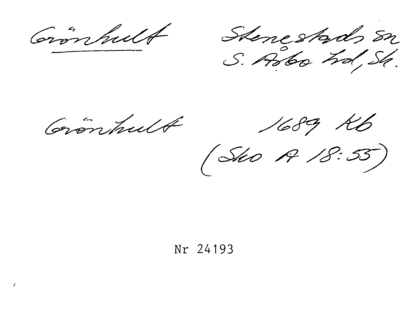 Grönhult Stenestads sn
S. Åsbo hd, Sk.
Grönhult 1689 Kb
(Sko A 18:55)
Nr 24193